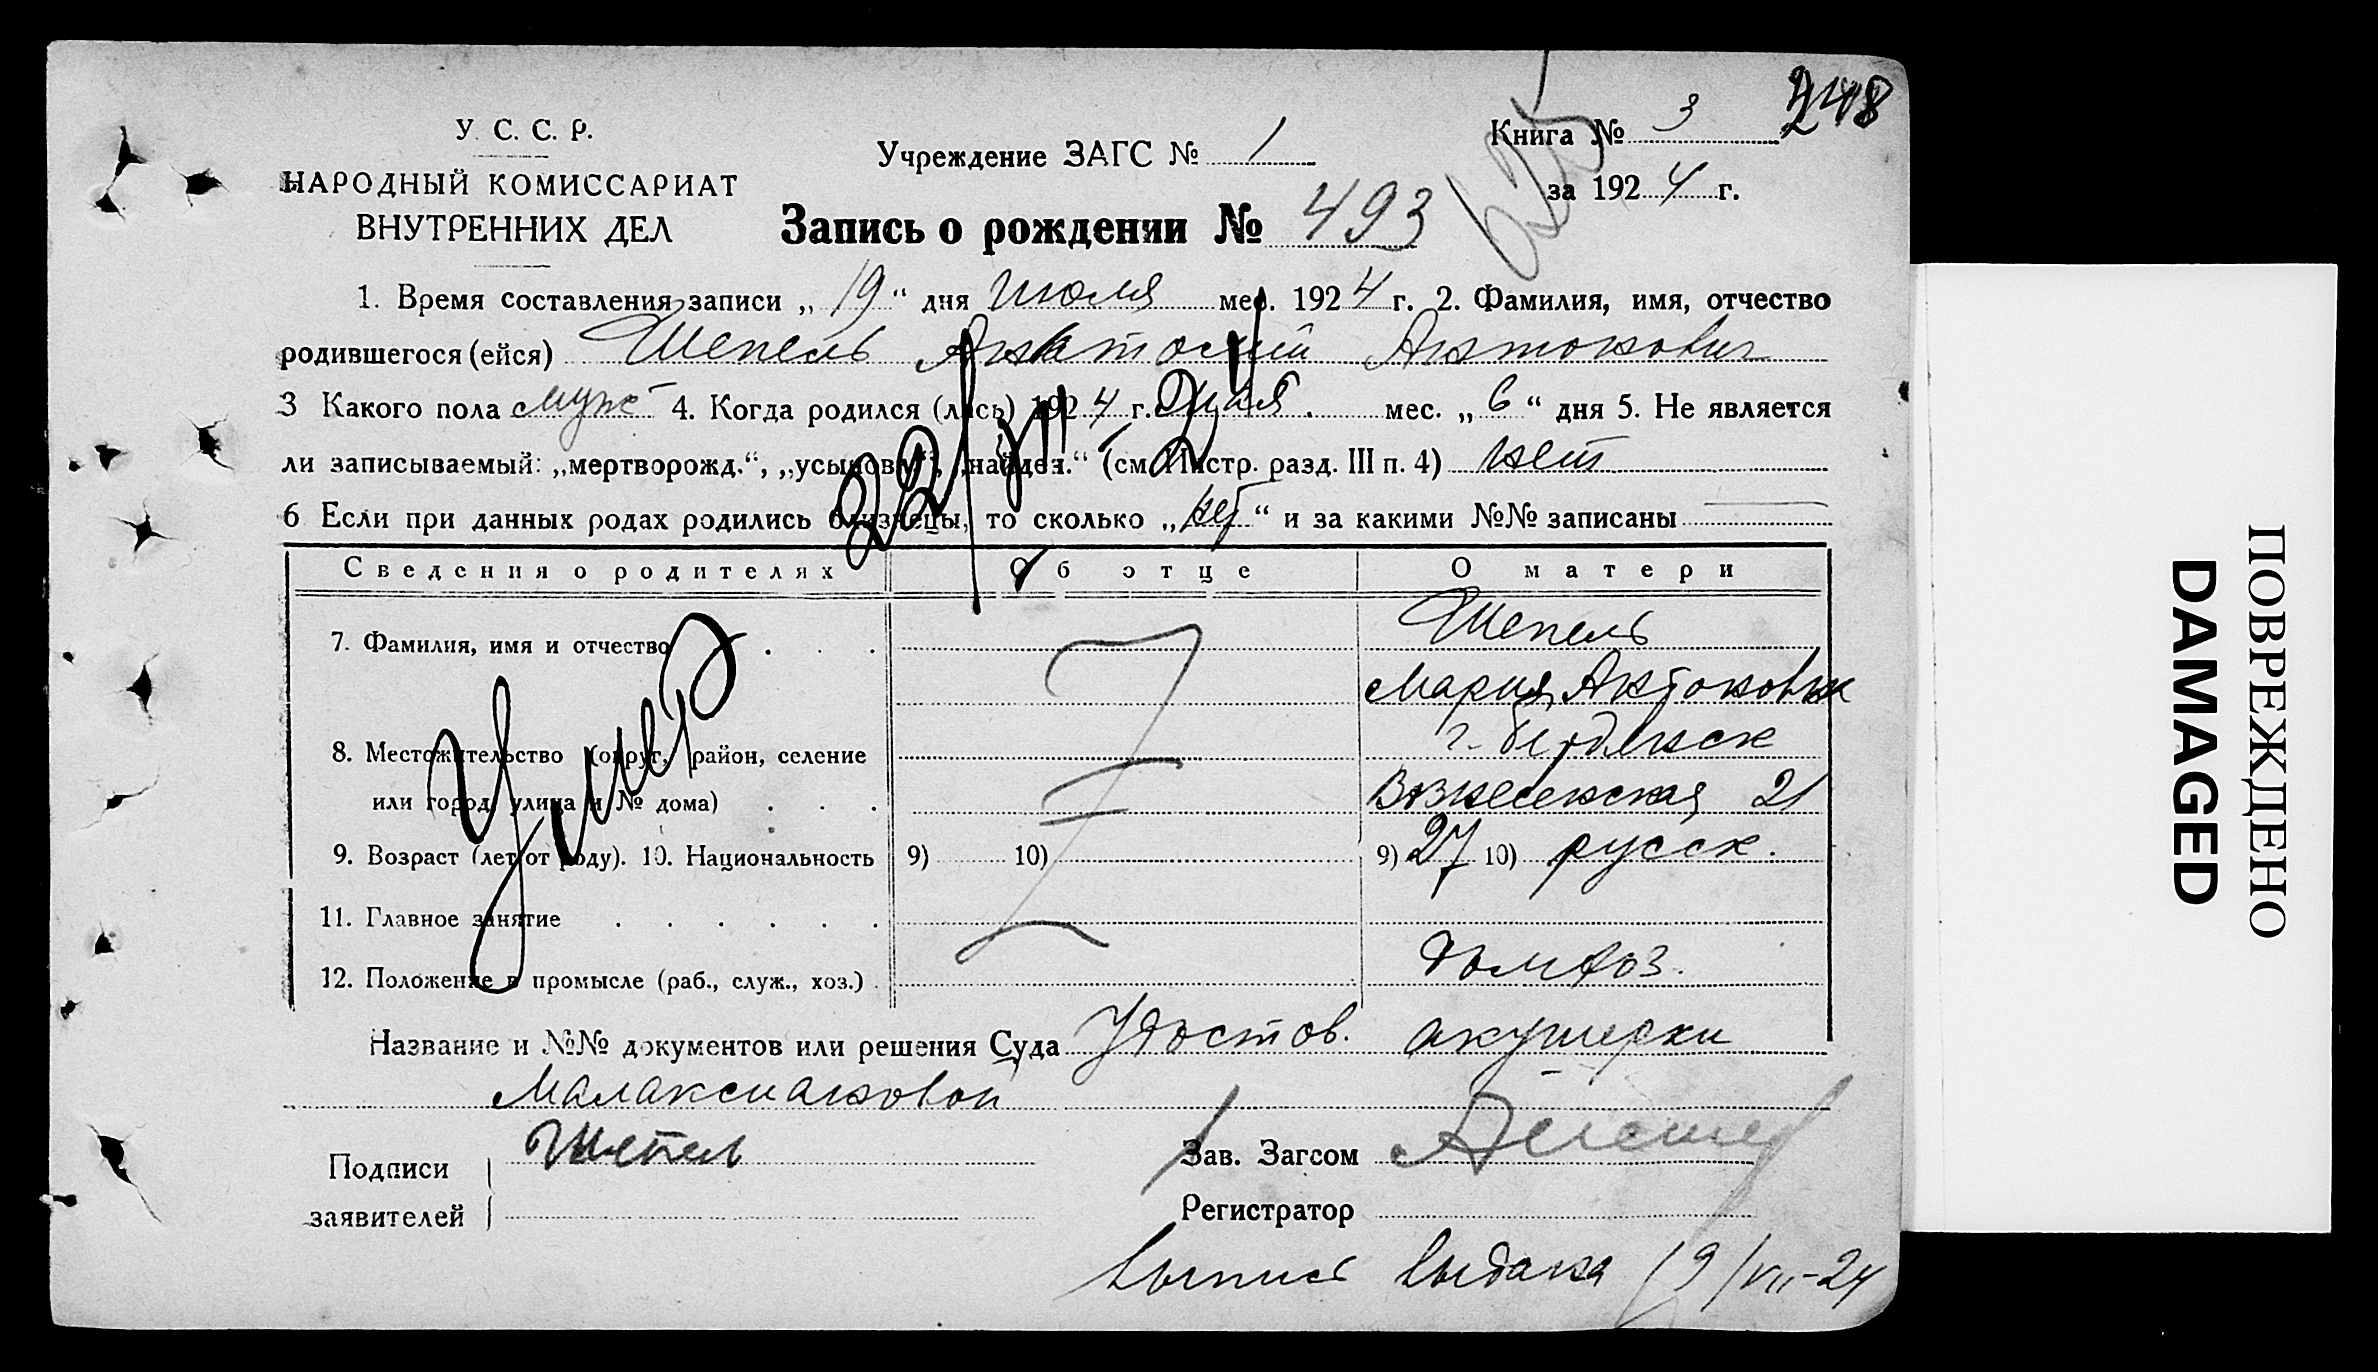 248
У. С. С. Р.
НАРОДНЫЙ КОМИССАРИАТ
ВНУТРЕННИХ ДЕЛ
Учреждение ЗАГС № 1
Книга № 3
за 1924 г.
625
Запись о рождении № 493
1. Время составления записи „ 19 “ дня июля мес. 1924 г. 2. Фамилия, имя, отчество
родившегося (ейся) Шепель Анатолий Антонович
3 Какого пола муж 4. Когда родился (лась) 1924 г. мес. „ 6 “ дня 5. Не является
ли записываемый: „мертворожд.“, „усыновл.“, „найден.“ (см. Инстр. разд. III п. 4) нет
6 Если при данных родах родились близнецы, то сколько „ нет “ и за какими №№ записаны
Сведения о родителях Об отце О матери
7. Фамилия, имя и отчество Шепель
Мария Антоновн
8. Местожительство (округ, район, селение г. Бердянск
или город, улица и № дома) Вознесенская 21
9. Возраст (лет от роду). 10. Национальность 9) 10) 9) 27 10) русск.
11. Главное занятие
12. Положение в промысле (раб., служ., хоз.) домхоз.
Умер
Название и №№ документов или решения Суда Удостов. акушерки
Подписи Шепель Зав. Загсом
заявителей Регистратор
Выпись выдана 19/VII-24
ПОВРЕЖДЕНО
DAMAGED